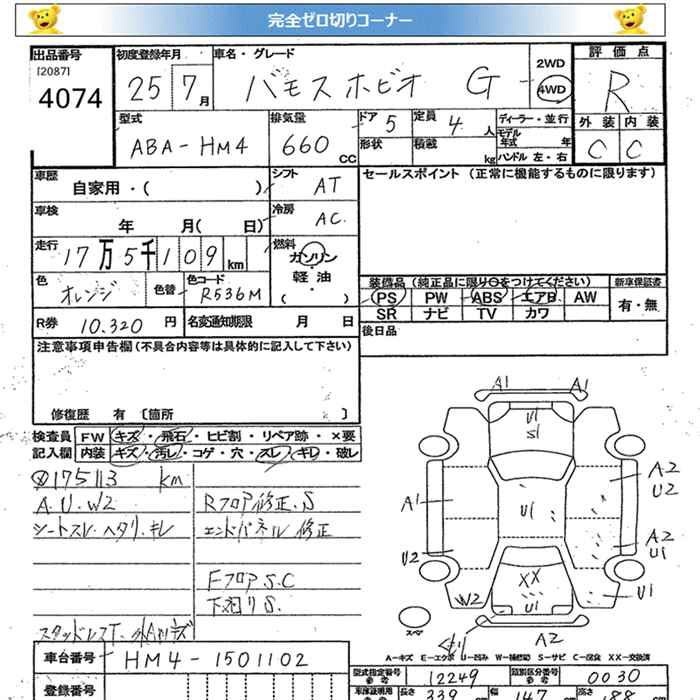 完全ゼロ切りコーナー
出品番号
[2087]
4074
初度登録年月
25 7 月
車名・グレード
バモス ホビオ G
2WD
4WD
評価点
R
型式
ABA-HM4
排気量
660 CC
ドア 5
形状
定員 4 人
積載 kg
ディーラー・並行
モデル年式 年
ハンドル 左・右
外装 内装
C C
車歴
自家用・( )
シフト AT
セールスポイント (正常に機能するものに限ります)
車検
年 月( 日)
冷房 AC
走行
17万5千109 km
燃料
ガソリン・軽油・( )
色
オレンジ
色替
色コード
R536M
装備品 (純正品に限り○をつけてください)
新車保証書
PS PW ABS エアB AW
SR ナビ TV カワ
有・無
R券 10.320 円
名変通知期限 月 日
後日品
注意事項申告欄 (不具合内容等は具体的に記入して下さい)
修復歴 有 [箇所 ]
検査員記入欄
FW キズ・飛石・ヒビ割・リペア跡・×要
内装 キズ・汚レ・コゲ・穴・スレ・キレ・破レ
175113 km
A.U.W2
シートスレ.ヘタリ.キレ
Rフロア修正.S
エンドパネル修正
Fフロア S.C
下廻りS.
スタッドレスT.
A1 A1
U1
S1
A2
U2
A1
U1
A2
U1
U2
W2
XX
U1
U1
A2
スペア
A-キズ E-エクボ U-凹み W-補修跡 S-サビ C-腐食 XX-交換済
車台番号 HM4-1501102
型式指定番号 参考 12249
類別区分番号 参考 0030
登録番号
車庫証明用 参考 長さ 339 cm 幅 147 cm 高さ 188 cm